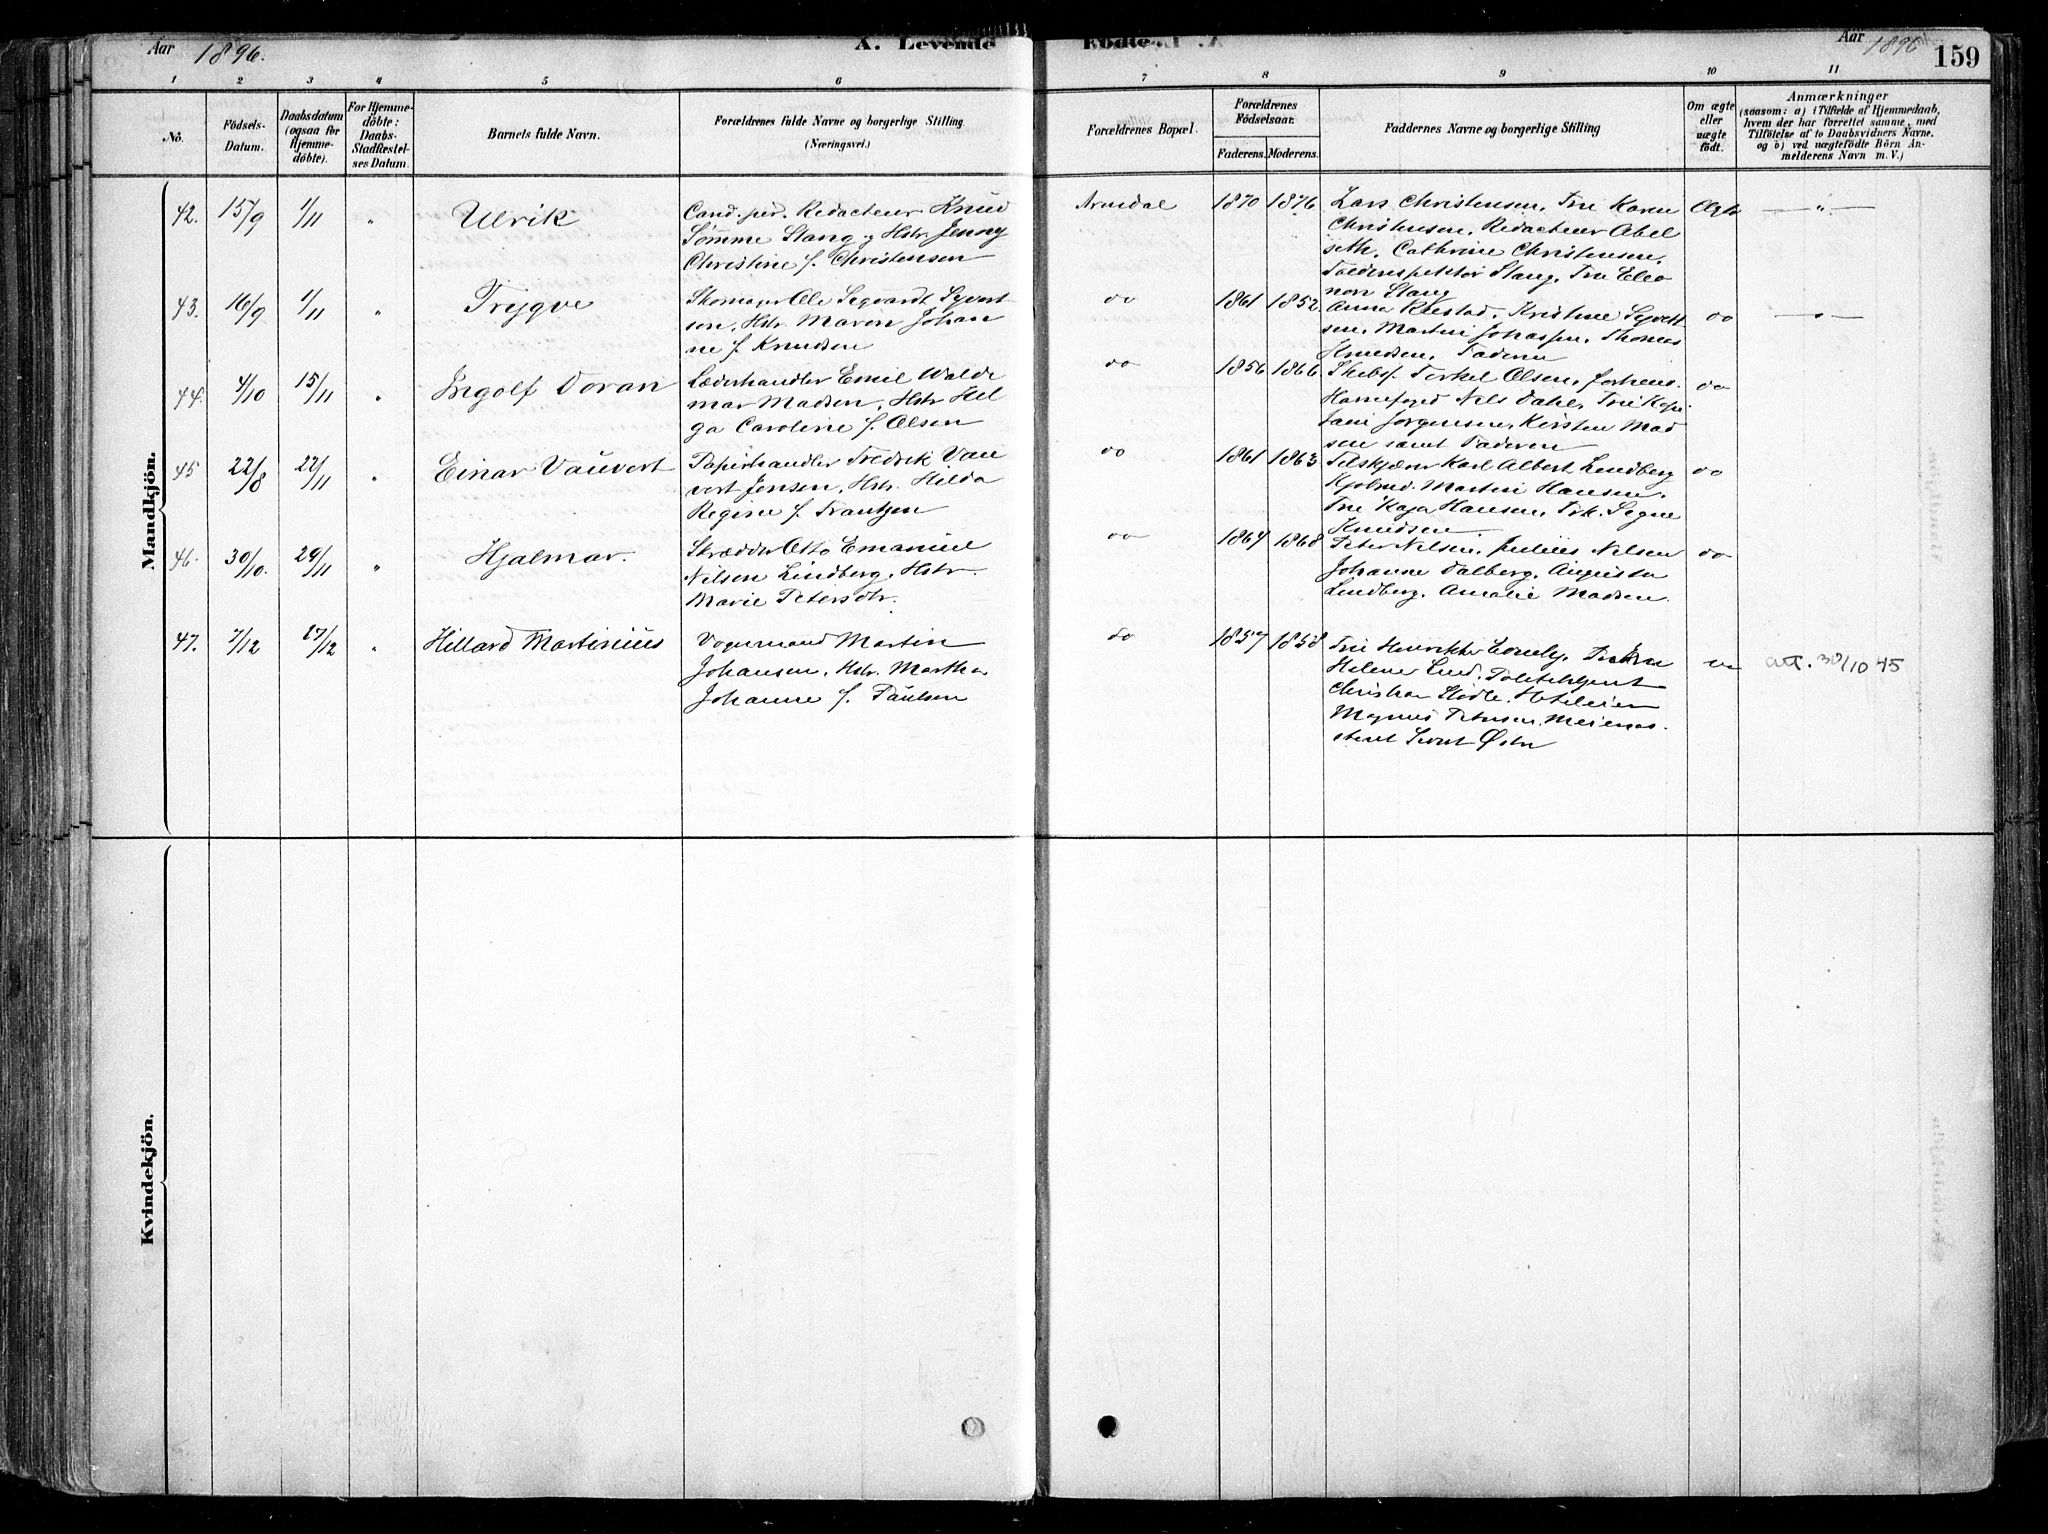 Aar 1896.
A. Levende
Födte.
Aar 1896
159
1 2 3 4 5 6 7 8 9 10 11
No.
Födsels-
Datum.
Daabsdatum
(ogsaa for
Hjemme-
döbte).
For Hjemme-
döbte:
Daabs-
Stadfæstel-
ses Datum.
Barnets fulde Navn.
Forældrenes fulde Navne og borgerlige Stilling
(Næringsvei.)
Forældrenes Bopæl.
Forældrenes
Födselsaar.
Faderens. Moderens.
Faddernes Navne og borgerlige Stilling
Om ægte
eller
uægte
födt.
Anmærkninger
(saasom: a) i Tilfælde af Hjemmedaab,
hvem der har forrettet samme, med
Tilföielse af to Daabsvidners Navne.
og b) ved uægtefödte Börn An-
melderens Navn m. V.)
Mandkjön.
42. 15/9 1/11 " Ulrik
Cand. Redacteur Knud
Sømme Stang og Hstr. Jenny
Christine f. Christensen
Arendal 1870 1876
Lars Christensen, Frue Karen
Christensen, Redacteur Abel
seth, Cathrine Christensen,
Toldinspektør Stang, Frue Eleo
nore Stang
Ægte
— " —
43. 16/9 1/11 " Trygve
Skomager Ole Segvardt Syvert
sen, Hstr. Maren Johan
ne f. Knudsen
do 1861 1852
Anna Kristine Syvert
sen, Martin Thomas
Knudsen, Faderen
do
— " —
44. 4/10 15/11 " Ingolf Doran
Læderhandler Emil Walde
mar Madsen, Hstr. Hel
ga Caroline f. Olsen
do 1856 1866
Skibsf. Terkel Olsen,
Havnefoged Nils Dahl, Frue
Jørgensen, Kirsten Mad
sen samt Faderen
do
45 22/8 22/11 " Einar Vauvert
Papirhandler Fredrik Vau
vert Jensen, Hstr. Hilda
Regine f. Frantzen
do 1861 1863
Karl Albert Lindberg
Kjøbmd. Martin Hansen,
Frue Kaja Hansen, Frk. Signe
Knudsen
do
46. 30/10. 29/11 " Hjalmar.
Skrædder Otto Emanuel
Nilsen Lindberg, Hstr.
Marie Petersdtr.
do 1864 1868
Peter Nelsen, Julius Nelsen
Johanne Dalberg, Augusta
Lindberg, Amalie Madsen.
do
47. 7/12 27/12 " Hillard Martinius
Vognmand Martin
Johansen, Hstr. Martha
Johanne f. Paulsen
do 1857 1858
Frue Henrikke
Helene Lund, Politibetjent
Christian Hoteleier
Magnus Petersen,
do
att. 30/10 45
Kvindekjön.